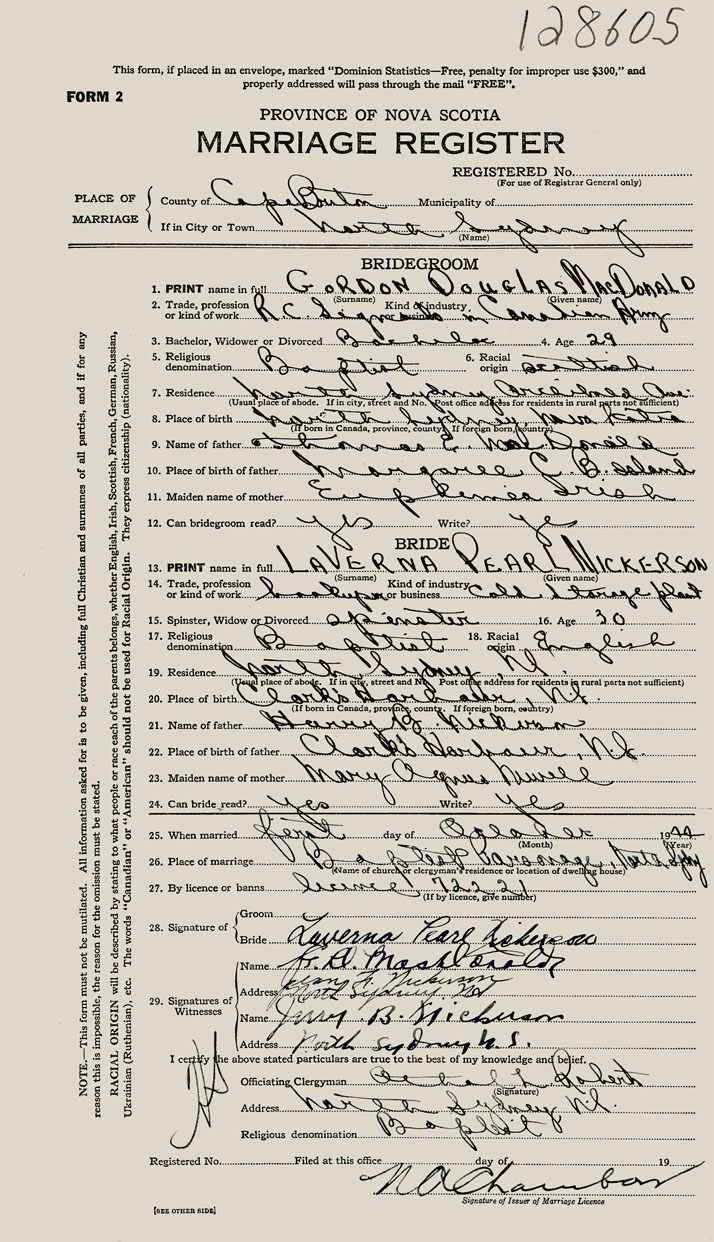 128605
This form, if placed in an envelope, marked "Dominion Statistics—Free, penalty for improper use $300," and
properly addressed will pass through the mail "FREE".
FORM 2
PROVINCE OF NOVA SCOTIA
MARRIAGE REGISTER
REGISTERED No.
(For use of Registrar General only)
PLACE OF MARRIAGE
County of Cape Breton Municipality of
If in City or Town North Sydney
(Name)
BRIDEGROOM
1. PRINT name in full GORDON DOUGLAS MACDONALD
(Surname) (Given name)
2. Trade, profession or kind of work R.C. Signals Kind of industry or business in Canadian Army
3. Bachelor, Widower or Divorced Bachelor 4. Age 29
5. Religious denomination Baptist 6. Racial origin Scottish
7. Residence North Sydney, Archibald Ave.
(Usual place of abode. If in city, street and No. Post office address for residents in rural parts not sufficient)
8. Place of birth North Sydney Nova Scotia
(If born in Canada, province, county. If foreign born, country)
9. Name of father Thomas E. MacDonald
10. Place of father Margaree C. B. Island
11. Maiden name of mother Euphemia Irish
12. Can bridegroom read? yes Write? ye
BRIDE
13. PRINT name in full LAVERNA PEARL NICKERSON
(Surname) (Given name)
14. Trade, profession or kind of work Kind of industry or business Cold Storage plant
15. Spinster, Widow or Divorced Spinster 16. Age 30
17. Religious denomination Baptist 18. Racial origin English
19. Residence North Sydney, N.S.
(Usual place of abode. If in city, street and No. Post office address for residents in rural parts not sufficient)
20. Place of birth Clark's Harbour, N.S.
(If born in Canada, province, county. If foreign born, country)
21. Name of father Harry B. Nickerson
22. Place of birth of father Clark's Harbour, N.S.
23. Maiden name of mother Mary Agnes Newell
24. Can bride read? yes Write? Yes
25. When married first day of October 1944
(Month) (Year)
26. Place of marriage Baptist Parsonage, North Sydney
(Name of church or clergyman's residence or location of dwelling house)
27. By licence or banns licence, 72221
(If by licence, give number)
28. Signature of
Groom
Bride Laverna Pearl Nickerson
29. Signatures of Witnesses
Name G. D. MacDonald
Jean F. Nickerson
Address North Sydney, NS
Name Harry B. Nickerson
Address North Sydney N.S.
I certify the above stated particulars are true to the best of my knowledge and belief.
Officiating Clergyman
(Signature)
Address North Sydney N.S.
Religious denomination Baptist
Registered No. Filed at this office day of 19
Signature of Issuer of Marriage Licence
[SEE OTHER SIDE]
NOTE.—This form must not be mutilated. All information asked for is to be given, including full Christian and surnames of all parties, and if for any
reason this is impossible, the reason for the omission must be stated.
RACIAL ORIGIN will be described by stating to what people or race each of the parents belongs, whether English, Irish, Scottish, French, German, Russian,
Ukrainian (Ruthenian), etc. The words "Canadian" or "American" should not be used for Racial Origin. They express citizenship (nationality).